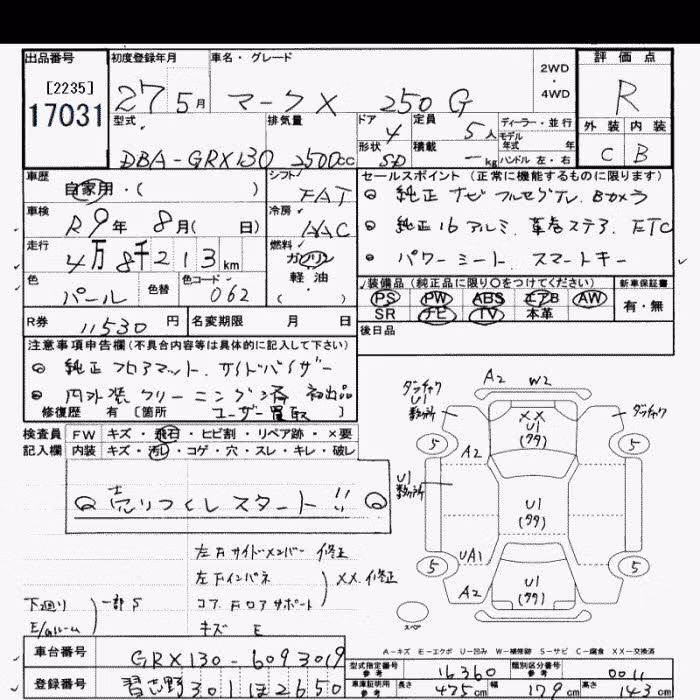 出品番号 初度登録年月 車名・グレード 評価点
[2235]
17031
27年 5月 マークX 250G
2WD・4WD
R
型式 排気量 ドア 定員 ディーラー・並行
DBA-GRX130 2500cc 4 5人
モデル年式 年
外装 内装
形状 積載 ハンドル 左・右
SD ー kg
C B
車歴 シフト セールスポイント (正常に機能するものに限ります)
自家用・( ) FAT
純正ナビ フルセグTV. Bカメラ
車検 冷房
R9年 8月( 日) AAC
純正16アルミ. 革巻ステア. ETC
走行 燃料
4万8千213km ガソリン
パワーシート. スマートキー
軽・油
( )
色 色替 色コード
パール 062
装備品 (純正品に限り○をつけてください) 新車保証書
PS PW ABS エアB AW 有・無
SR ナビ TV 本革
R券 11530円 名変期限 月 日
後日品
注意事項申告欄(不具合内容等は具体的に記入して下さい)
純正フロアマット. サイドバイザー
内外装クリーニング済 初出品
修復歴 有 [箇所 ユーザー買取 ]
検査員 FW キズ・飛石・ヒビ割・リペア跡・×要
記入欄 内装 キズ・汚れ・コゲ・穴・スレ・キレ・破レ
売りつくしスタート!!
A2 W2
ダンチャク
U1
数ヶ所
ダンチャク
XX
U1
5 5
A2
U1
数ヶ所
U1
UA1
5 5
A2
U1
スペア
左Fサイドメンバー 修正
左Fインパネ XX. 修正
コア. Fロアサポート
キズ E
下廻り 一部S
E/gルーム
A-キズ E-エクボ U-凹み W-補修跡 S-サビ C-腐食 XX-交換済
車台番号 GRX130-6093019
型式指定番号 参考 16360 類別区分番号 参考 0011
登録番号 習志野301ほ2650
車庫証明用 参考 長さ 475cm 幅 179cm 高さ 143cm